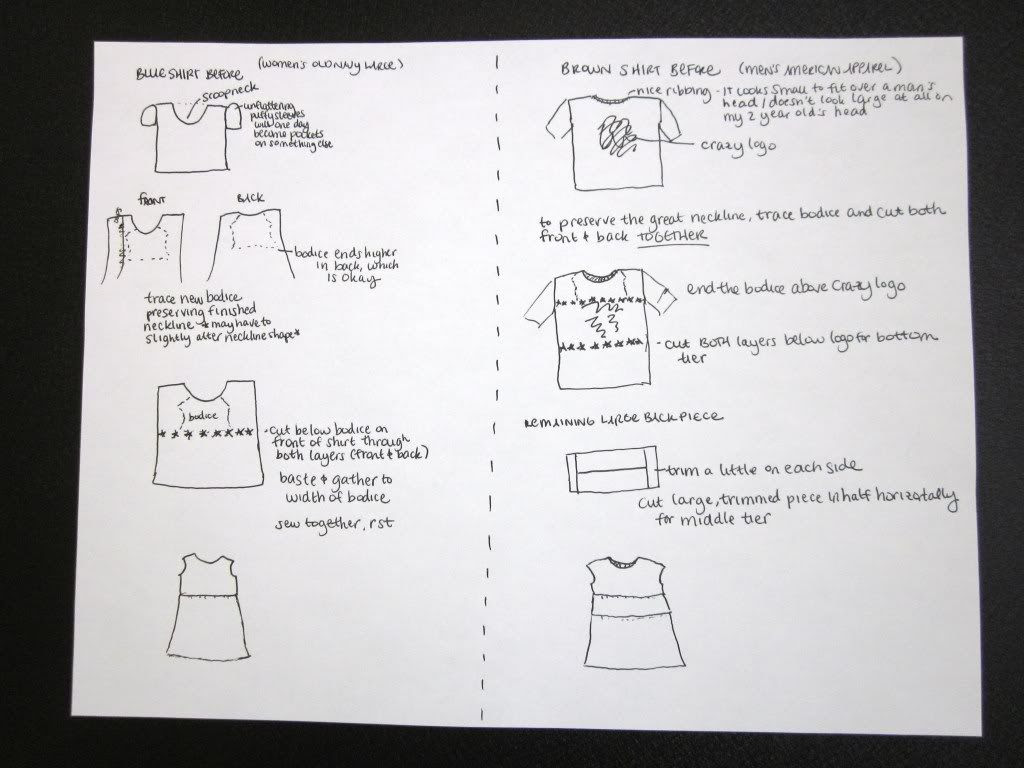 BLUE SHIRT BEFORE (WOMEN'S OLD NAVY LARGE)
scoopneck
unflattering
puffy sleeves
will one day
become pockets
on something else
FRONT
BACK
bodice ends higher
in back, which
is okay
trace new bodice
preserving finished
neckline *may have to
slightly alter neckline shape*
bodice
- cut below bodice on
front of shirt through
both layers (front & back)
baste & gather to
width of bodice
sew together, rst
BROWN SHIRT BEFORE (MEN'S AMERICAN APPAREL)
nice ribbing - It looks small to fit over a man's
head / doesn't look large at all on
my 2 year old's head
crazy logo
to preserve the great neckline, trace bodice and cut both
front & back TOGETHER
end the bodice above crazy logo
- cut BOTH layers below logo for bottom
tier
REMAINING LARGE BACK PIECE
trim a little on each side
cut large, trimmed piece in half horizontally
for middle tier